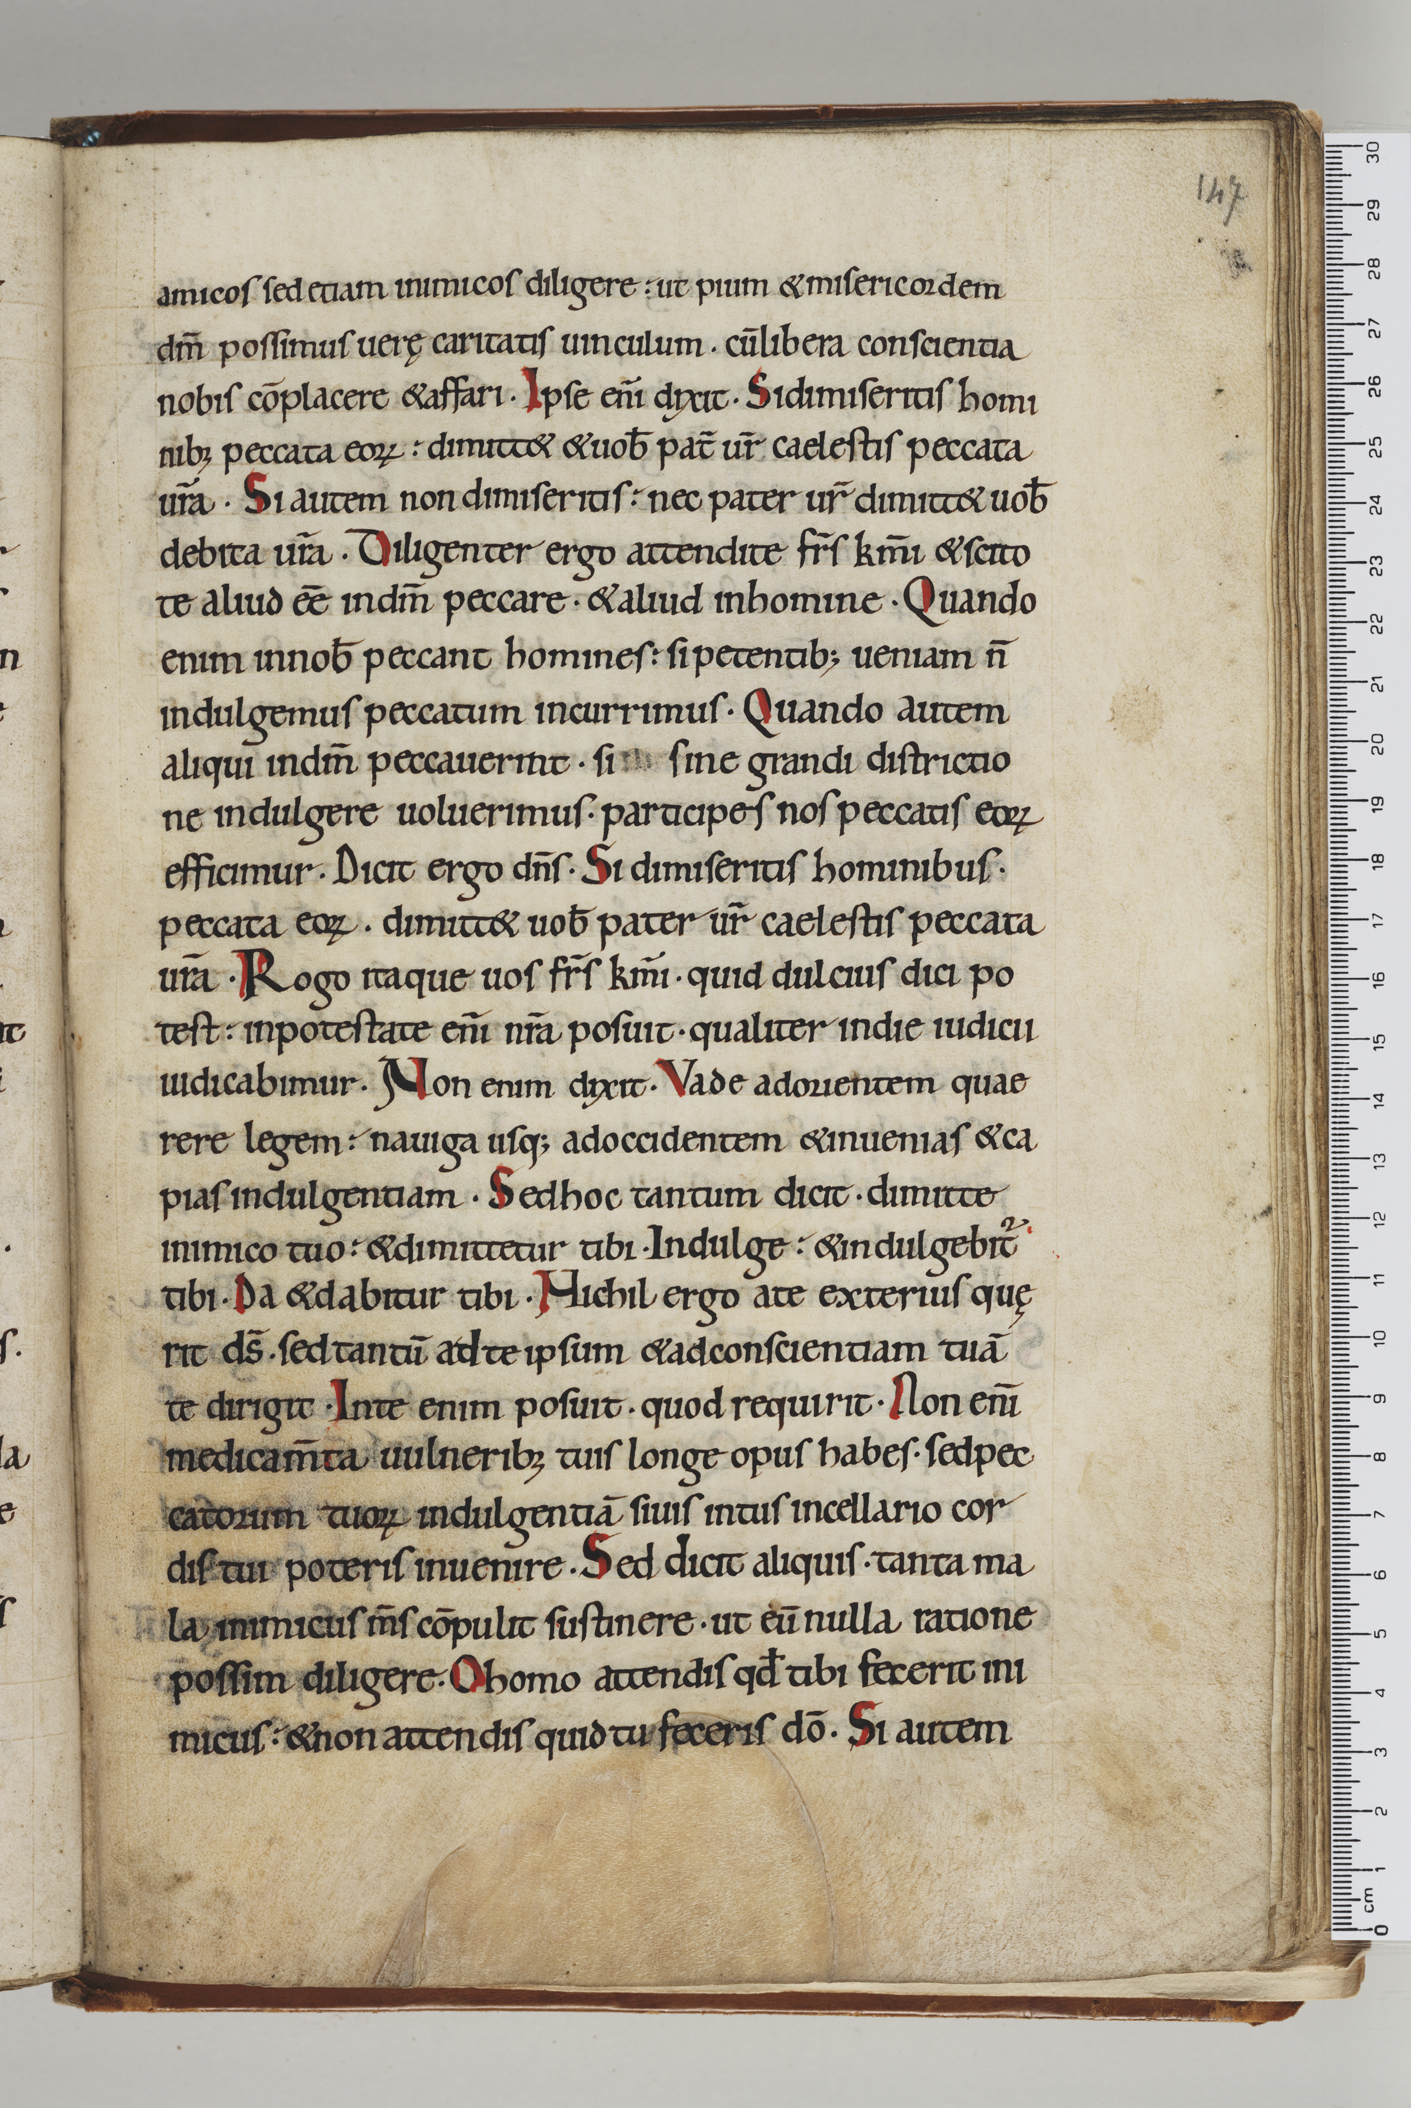 147
amicos sed etiam inimicos diligere: ut pium & misericordem
dm̄ possimus uerę caritatis uinculum. cū libera conscientia
nobis cōplacere & affari. Ipse enī dixit. Si dimiseritis homi
nibꝫ peccata eoꝝ: dimitt& & uob̄ pat̄ ur̄ caelestis peccata
ur̄a. Si autem non dimiseritis: nec pater ur̄ dimitt& uob̄
debita ur̄a. Diligenter ergo attendite fr̄s km̄i & scito
te aliud eē in dm̄ peccare. & aliud in homine. Quando
enim in nob̄ peccant homines: si petentibꝫ ueniam n̄
indulgemus peccatum incurrimus. Quando autem
aliqui in dm̄ peccauerint. si sine grandi districtio
ne indulgere uoluerimus. participes nos peccatis eoꝝ
efficimur. Dicit ergo dn̄s. Si dimiseritis hominibus.
peccata eoꝝ. dimitt& uob̄ pater ur̄ caelestis peccata
ur̄a. Rogo itaque uos fr̄s km̄i. quid dulcius dici po
test: in potestate enī nr̄a posuit. qualiter in die iudicii
iudicabimur. Non enim dixit. Vade ad orientem quae
rere legem: nauiga usqꝫ ad occidentem & inuenias & ca
pias indulgentiam. Sed hoc tantum dicit. dimitte
inimico tuo: & dimittetur tibi. Indulge: & indulgebit᷑
tibi. Da & dabitur tibi. Nichil ergo a te exterius quę
rit ds̄. sed tantū ad te ipsum & ad conscientiam tuā
te dirigit. In te enim posuit. quod requirit. Non enī
medicam̄ta uulneribꝫ tuis longe opus habes. sed pec
catorum tuoꝝ indulgentiā si uis intus in cellario cor
dis tui poteris inuenire. Sed dicit aliquis. tanta ma
la inimicus m̄s cōpulit sustinere. ut eū nulla ratione
possim diligere. O homo attendis qd̄ tibi fecerit ini
micus: & non attendis quid tu feceris dō. Si autem
0 cm 1 2 3 4 5 6 7 8 9 10 11 12 13 14 15 16 17 18 19 20 21 22 23 24 25 26 27 28 29 30